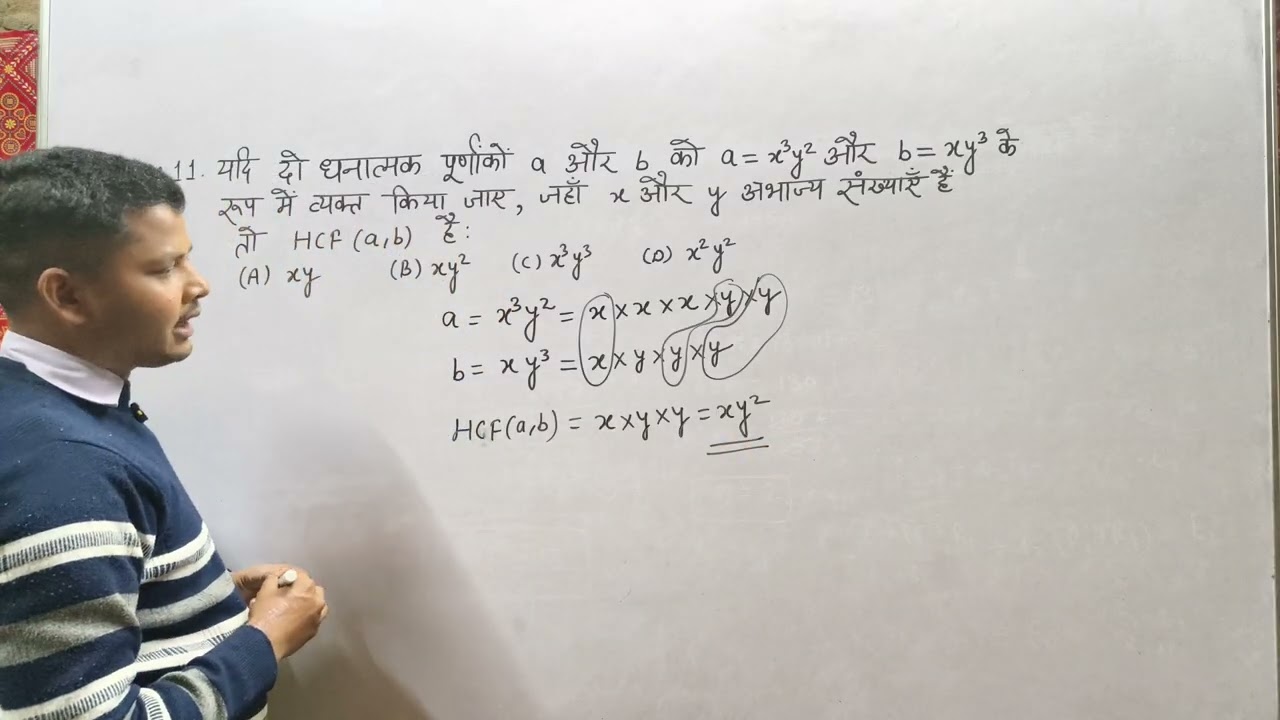 11. यदि दो धनात्मक पूर्णांकों a और b को a = x³y² और b = xy³ के
रूप में व्यक्त किया जाए, जहाँ x और y अभाज्य संख्याएँ हैं
तो HCF (a,b) है:
(A) xy (B) xy² (C) x³y³ (D) x²y²
a = x³y² = x × x × x × y × y
b = xy³ = x × y × y × y
HCF(a,b) = x × y × y = xy²